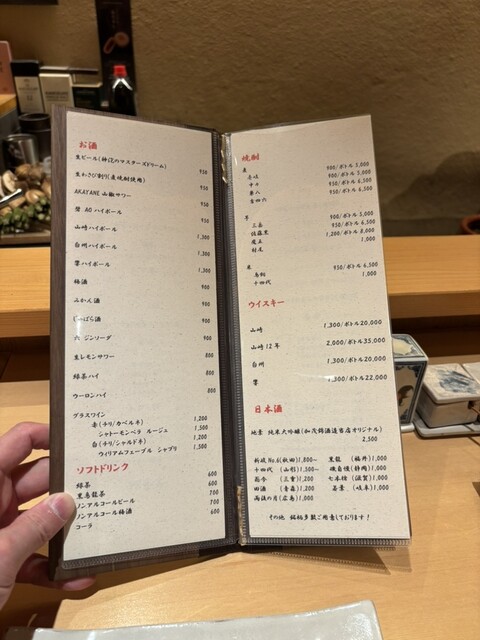 お酒
生ビール(神泡のマスターズドリーム) 950
生わさび割り(麦焼酎使用) 950
AKAYANE 山椒サワー 950
碧 AO ハイボール 950
山崎ハイボール 1,300
白州ハイボール 1,300
響ハイボール 1,300
梅酒 900
みかん酒 900
じゃばら酒 900
六 ジンソーダ 900
生レモンサワー 800
緑茶ハイ 800
ウーロンハイ 800
グラスワイン
赤(チリ/カベルネ) 1,200
シャトーモンペラ ルージュ 1,500
白(チリ/シャルドネ) 1,200
ウィリアムフェーブル シャブリ 1,500
ソフトドリンク
緑茶 600
黒烏龍茶 600
ノンアルコールビール 700
ノンアルコール梅酒 700
コーラ 600
焼酎
麦
壱岐 900/ボトル 5,000
十々 900/ボトル 5,000
兼八 950/ボトル 6,500
吉四六 950/ボトル 6,500
芋
三岳 900/ボトル 5,000
佐藤黒 950/ボトル 6,500
魔王 1,200/ボトル 8,000
村尾 1,000
米
鳥飼 950/ボトル 6,500
十四代 1,000
ウイスキー
山崎 1,300/ボトル20,000
山崎 12年 2,000/ボトル35,000
白州 1,300/ボトル20,000
響 1,300/ボトル22,000
日本酒
地意 純米大吟醸(加茂錦酒造当店オリジナル)
2,500
新政No.6(秋田)1,800~ 黒龍 (福井)1,000
十四代 (山形)1,300~ 磯自慢(静岡)1,000
而今 (三重)1,200 七本槍 (滋賀)1,000
田酒 (青森)1,200 若葉 (岐阜)1,000
雨後の月(広島)1,000
その他、銘柄多数ご用意しております!